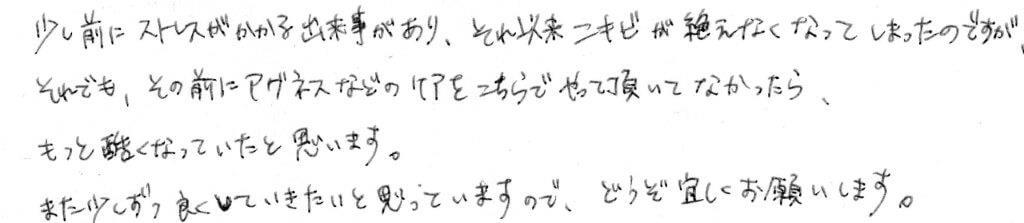 少し前にストレスがかかる出来事があり、それ以来ニキビが絶えなくなってしまったのですが、
それでも、その前にアグネスなどのケアをこちらでやって頂いてなかったら、
もっと酷くなっていたと思います。
また少しずつ良くしていきたいと思っていますので、どうぞ宜しくお願いします。